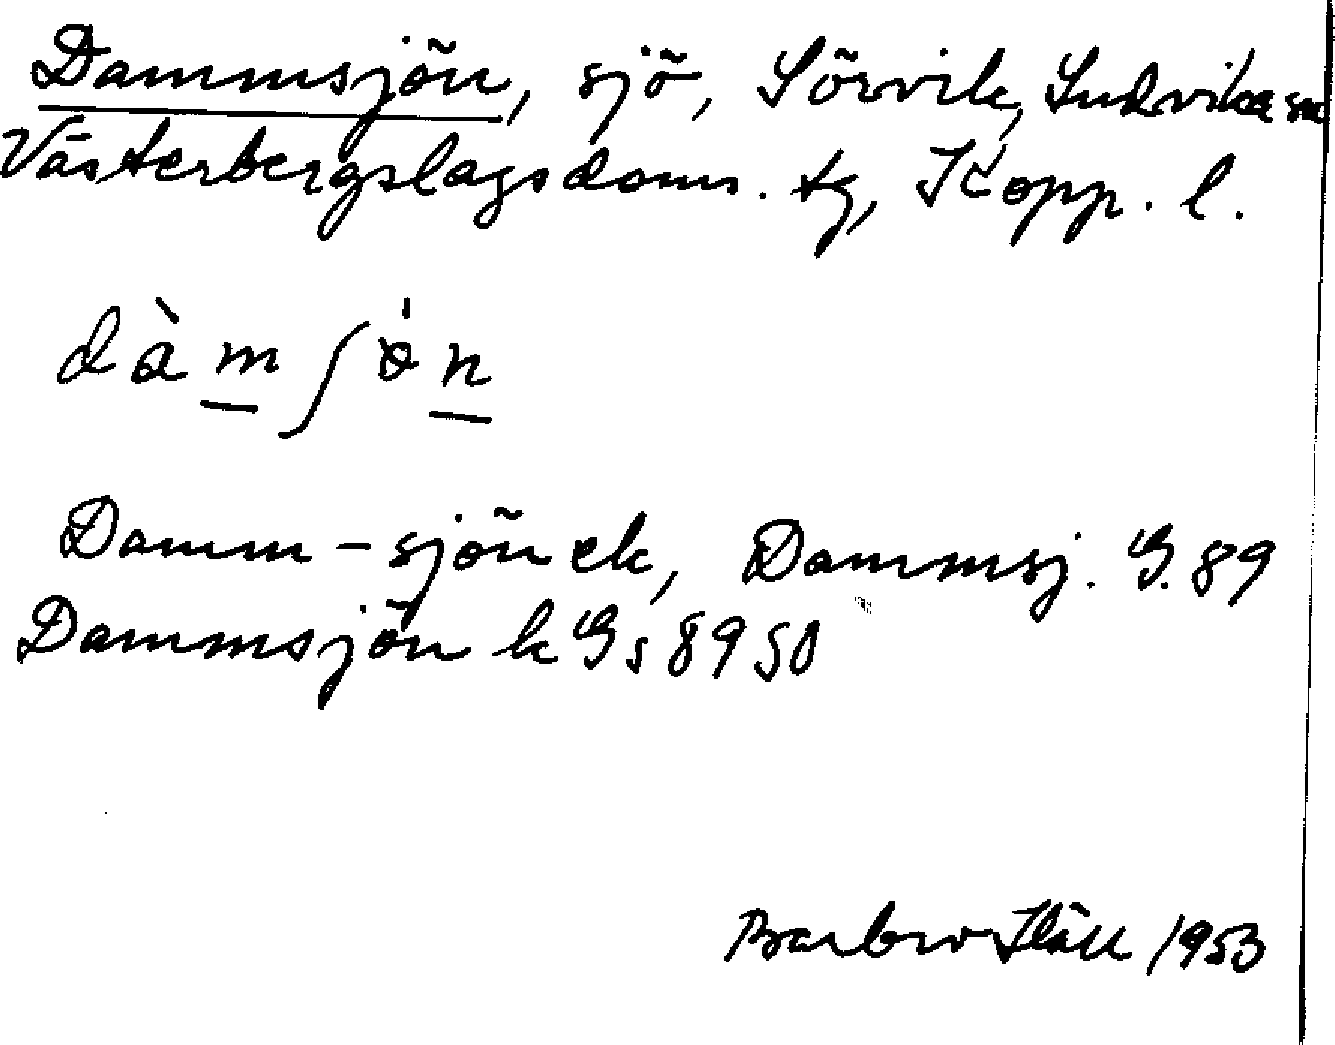 Dammsjön, sjö, Sörvik, Ludvika sn
Västerbergslags doms. tg, Kopp. l.
dàmʃɵ̇n
Damm-sjön ek, Dammsj. G. 89
Dammsjön k Gs 89 50
Barbro 1953